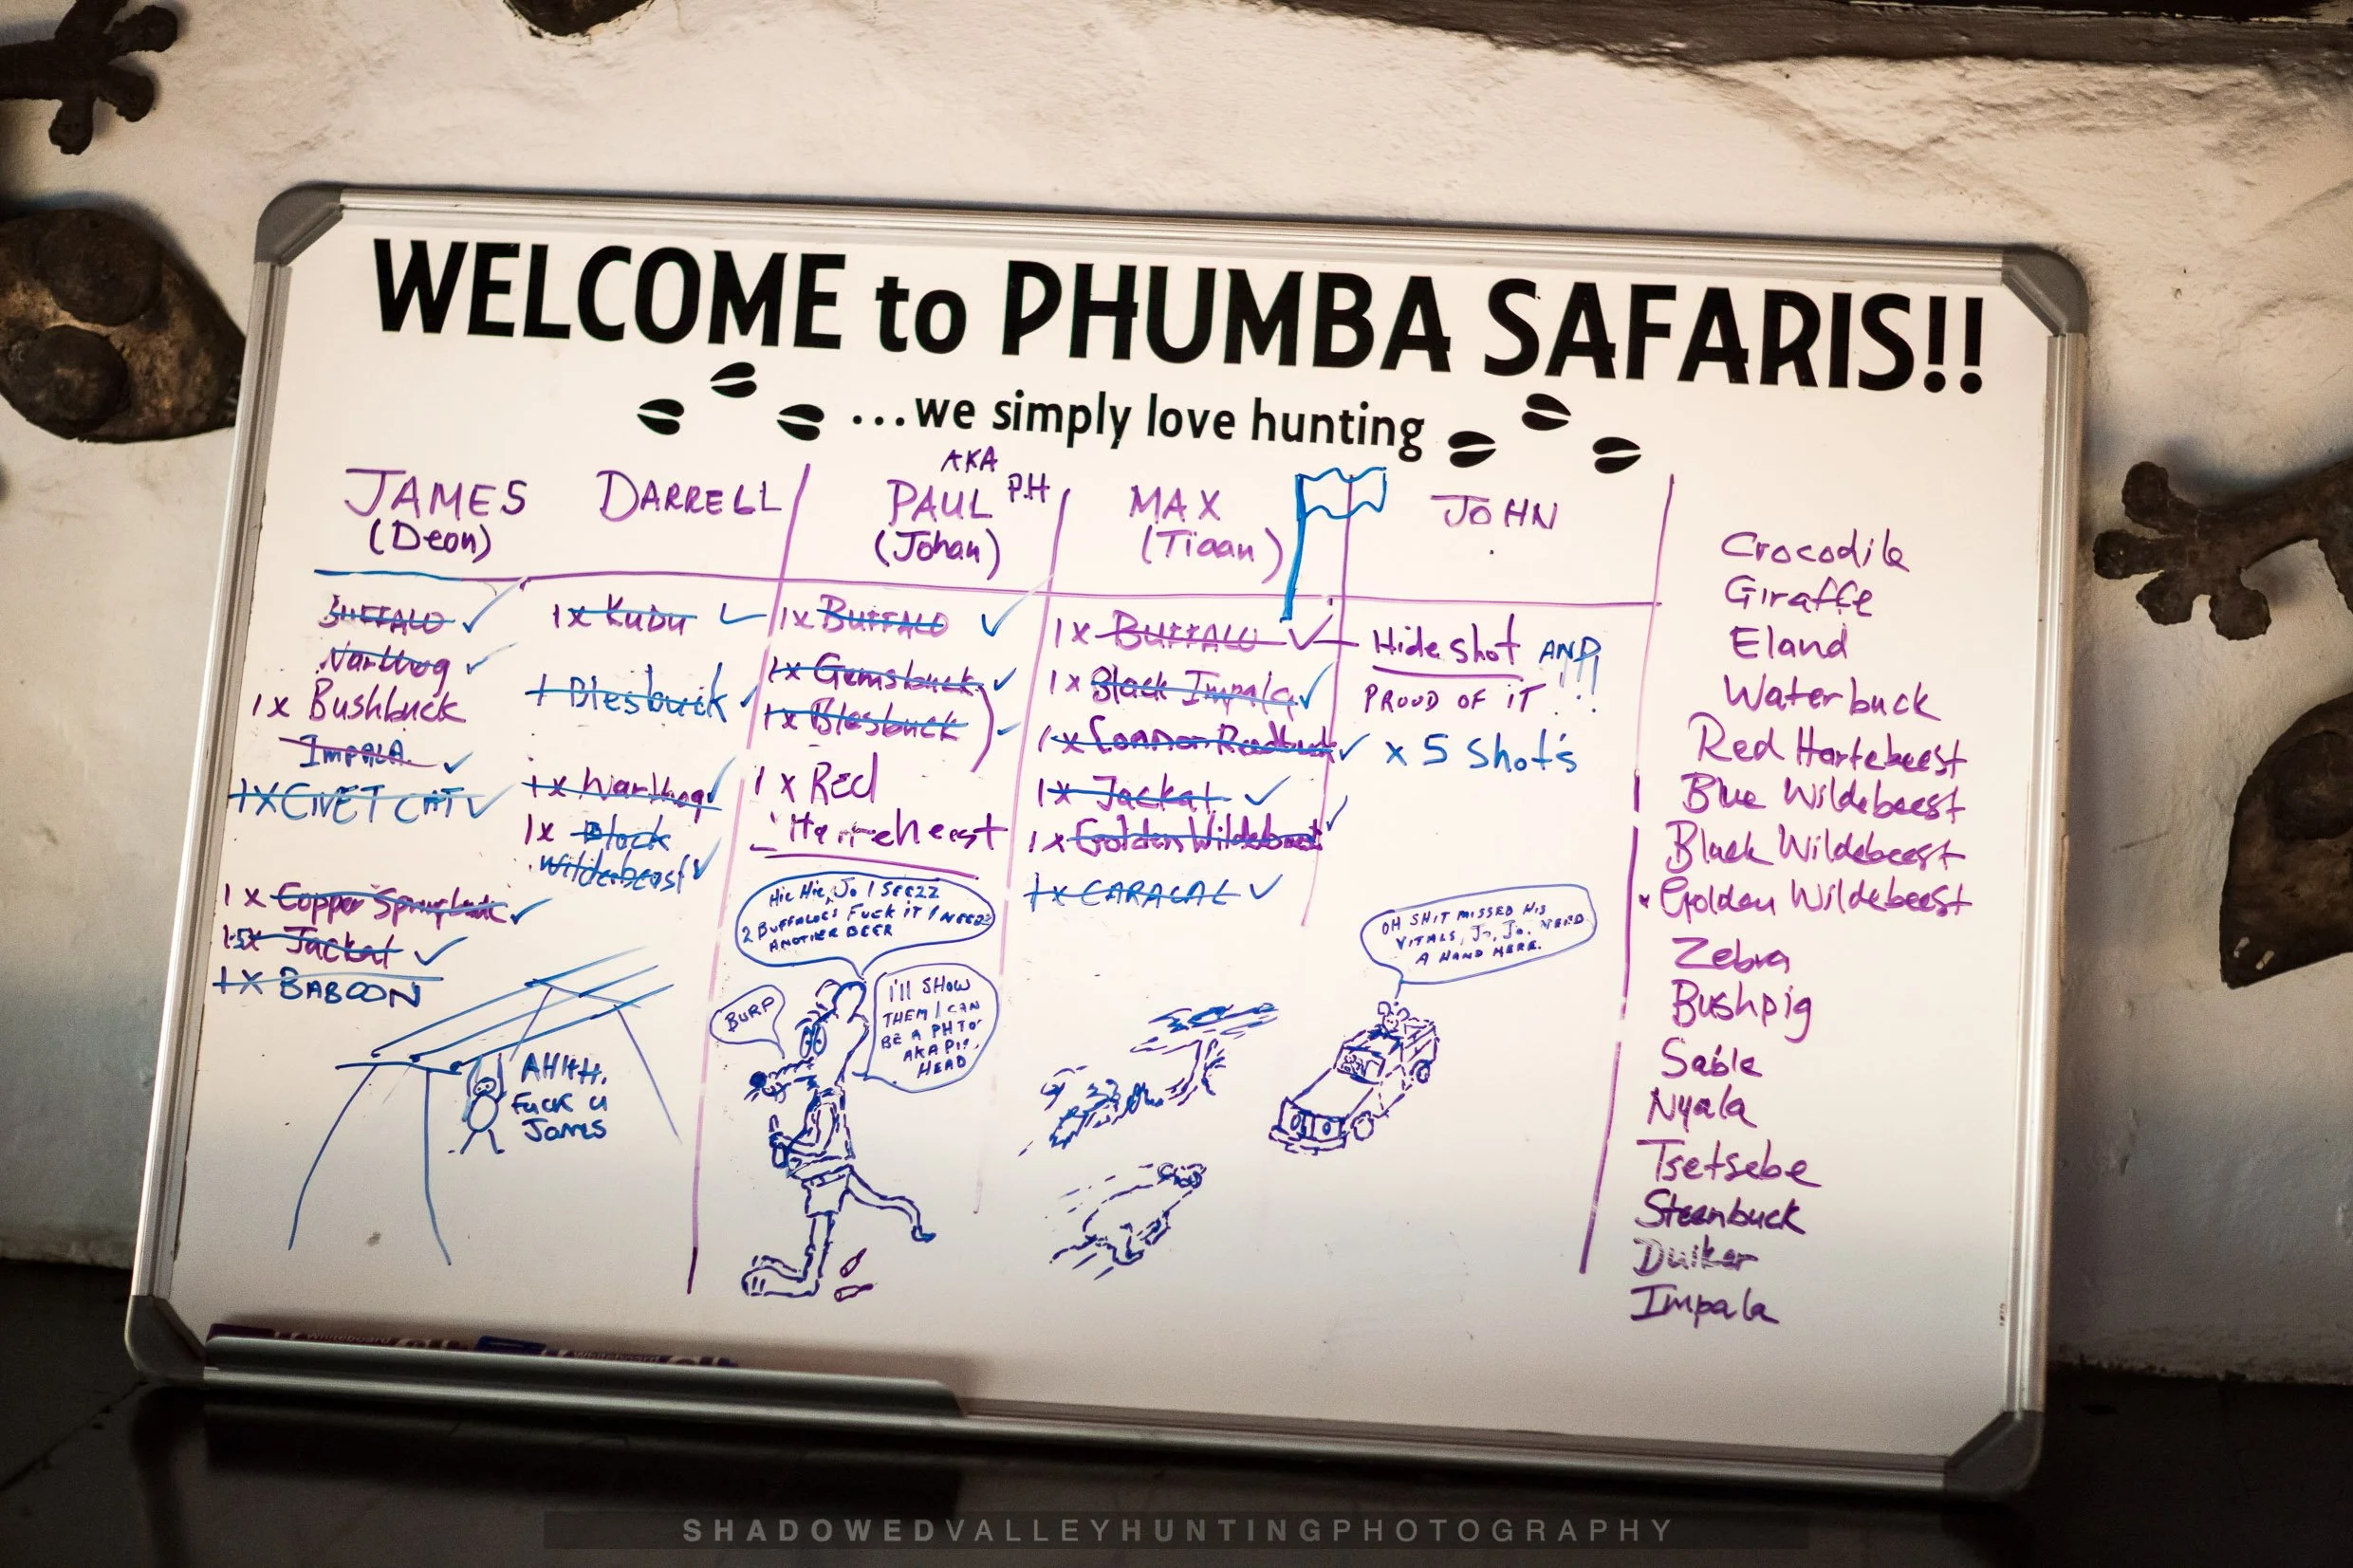 WELCOME to PHUMBA SAFARIS!!
...we simply love hunting
JAMES
(Deon)
DARRELL
AKA
PAUL P.H
(Johan)
MAX
(Tiaan)
JOHN
BUFFALO
Warthog
1x Bushbuck
Impala
1x CIVET CAT
1x Copper Springbuck
Jackal
1x BABOON
1x Kudu
1 Blesbuck
1x Warthog
1x Black
Wildebeest
1x BUFFALO
1x Gemsbuck
1x Blesbuck
1x Red
Harrebeest
1x BUFFALO
1x Black Impala
1x Common Reedbuck
1x Jackal
1x Golden Wildebeest
1x CARACAL
Hide shot AND!!!
PROUD OF IT
x 5 Shot's
Crocodile
Giraffe
Eland
Waterbuck
Red Hartebeest
Blue Wildebeest
Black Wildebeest
Golden Wildebeest
Zebra
Bushpig
Sable
Nyala
Tsetsebe
Steenbuck
Duiker
Impala
AHHH.
Fuck u
James
Hic Hic, Jo I SEEZZ
2 BUFFALOES FUCK IT I NEEZZ
ANOTHER BEER
BURP
I'll SHOW
THEM I CAN
BE A PH TO
AKA
HEAD
OH SHIT MISSED HIS
VITALS, Jo, Jo. NEED
A HAND HERE.
SHADOWEDVALLEYHUNTINGPHOTOGRAPHY